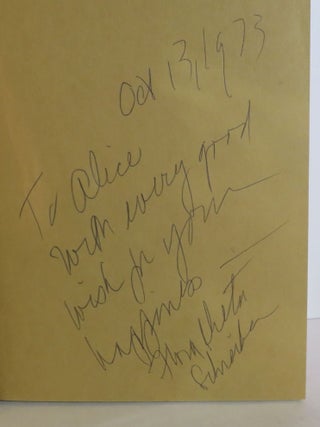 Oct 13, 1973
To Alice
With every good
wish for your
happiness —
Flora Rheta
Schreiber